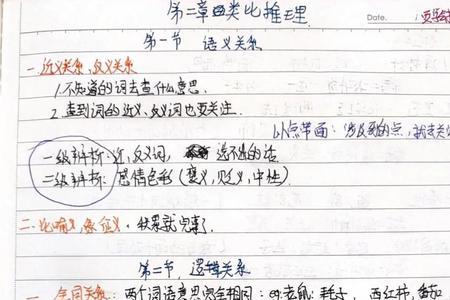 第二章 类比推理
Date.
第一节 语义关系
一.近义关系、反义关系
1.不知道的词去查什么意思.
2.查到词的近义、反义词也要关注.
以点带面：涉及到的点，就去关
一级辨析：近、反义词，选不选的话
二级辨析：感情色彩（褒义、贬义、中性）
二.比喻义、象征义，积累就完事了.
第二节、逻辑关系
一.全同关系：两个词语意思完全相同：eg:老鼠:耗子、西红柿:番茄